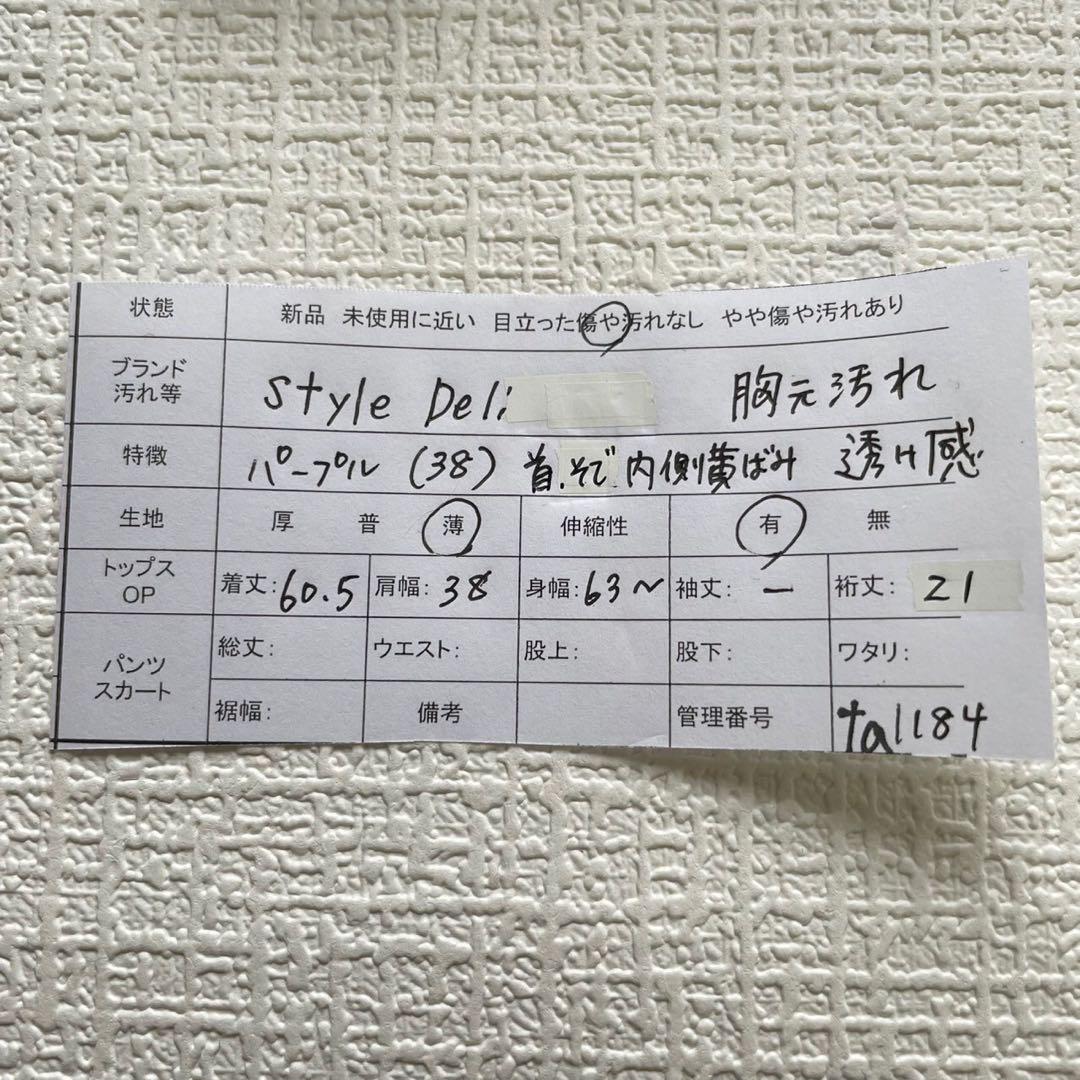 状態 新品 未使用に近い 目立った傷や汚れなし やや傷や汚れあり
ブランド
汚れ等 style Deli 胸元汚れ
特徴 パープル (38) 首.そで 内側黄ばみ 透け感
生地 厚 普 薄 伸縮性 有 無
トップス
OP 着丈:60.5 肩幅:38 身幅:63〜 袖丈:ー 裄丈:21
総丈: ウエスト: 股上: 股下: ワタリ:
パンツ
スカート
裾幅: 備考 管理番号 ta1184